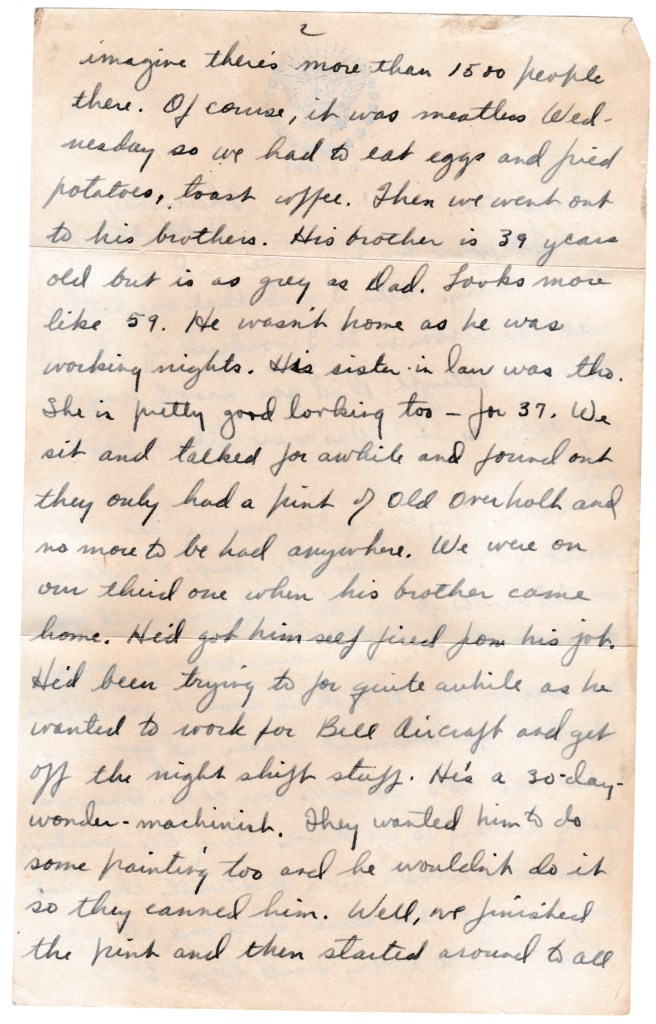 2
imagine there's more than 1500 people
there. Of course, it was meatless Wed-
nesday so we had to eat eggs and fried
potatoes, toast coffee. Then we went out
to his brothers. His brother is 39 years
old but is as grey as Dad. Looks more
like 59. He wasn't home as he was
working nights. His sister-in law was tho.
She is pretty good looking too - for 37. We
sit and talked for awhile and found out
they only had a pint of Old Overholt and
no more to be had anywhere. We were on
our third one when his brother came
home. He'd got him self fired from his job.
He'd been trying to for quite awhile as he
wanted to work for Bell Aircraft and get
off the night shift stuff. He's a 30-day-
wonder-machinist. They wanted him to do
some painting too and he wouldn't do it
so they canned him. Well, we finished
the pint and then started around to all